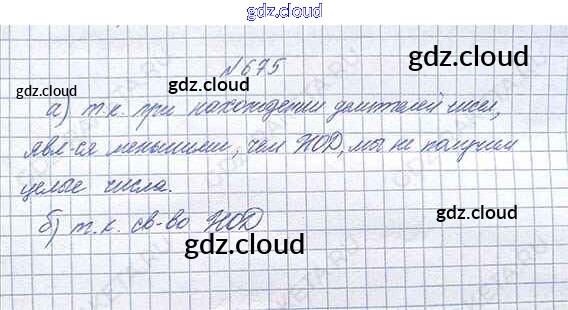 gdz.cloud
№675
gdz.cloud
gdz.cloud
а) т.к. при нахождении делителей чисел,
gdz.cloud
явл-ся меньшими, чем НОД, мы не получим
целые числа.
gdz.cloud
б) т.к. св-во НОД
gdz.cloud